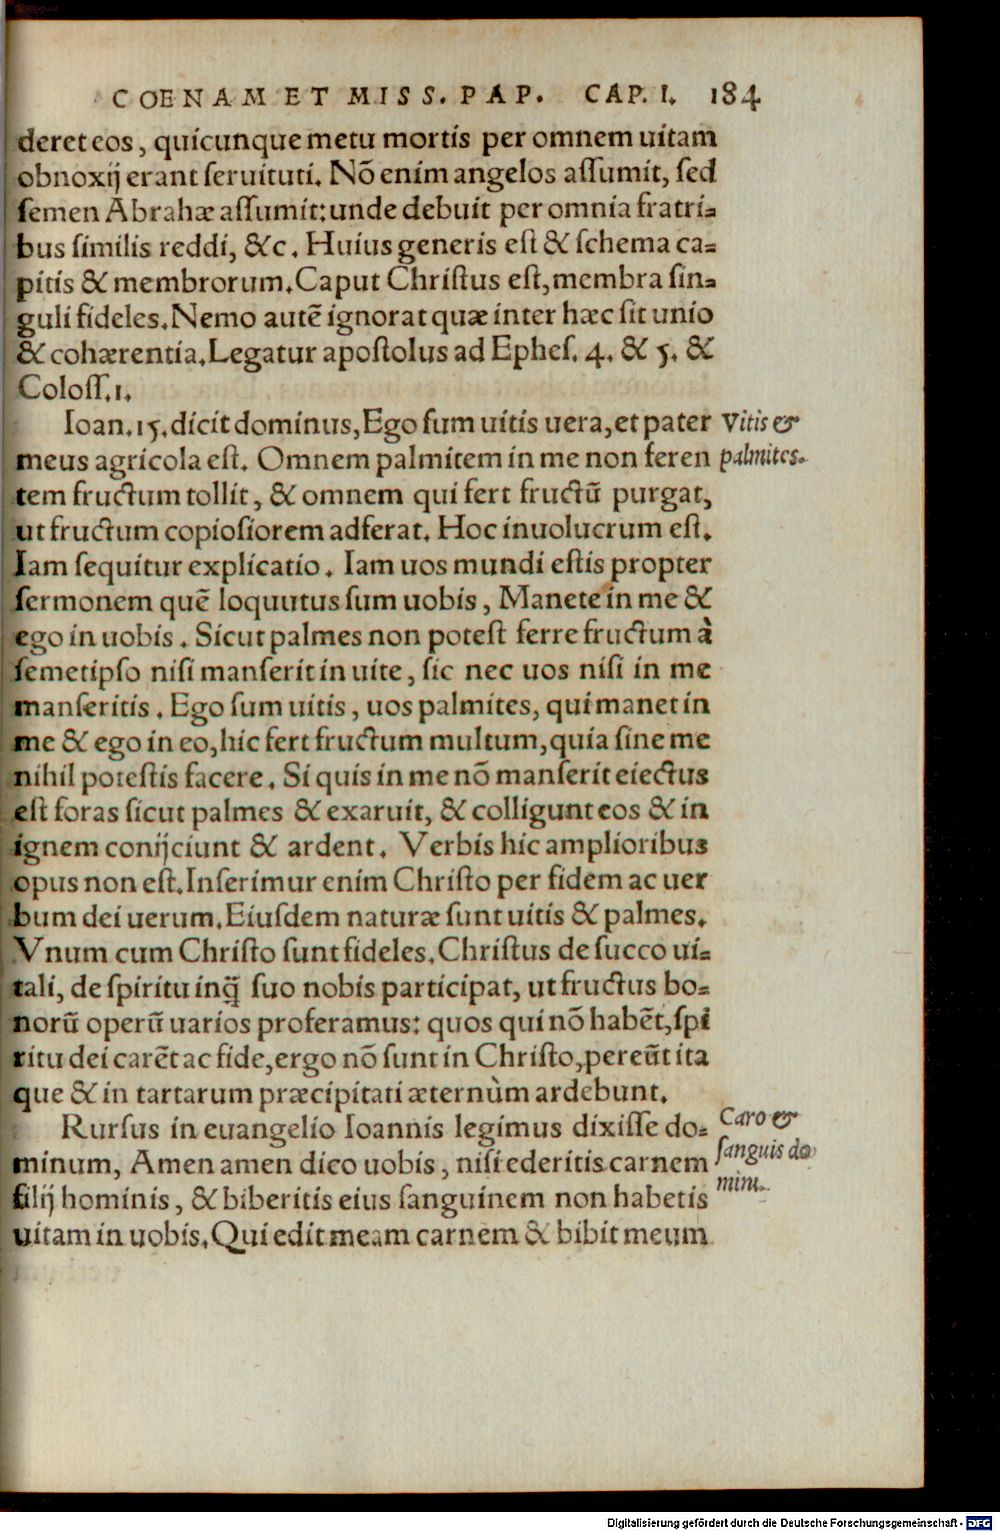 COENAM ET MISS. PAP. CAP. I. 184
deret eos, quicunque metu mortis per omnem uitam
obnoxij erant seruituti. Nō enim angelos assumit, sed
semen Abrahæ assumit: unde debuit per omnia fratri=
bus similis reddi, &c. Huius generis est & schema ca=
pitis & membrorum. Caput Christus est, membra sin=
guli fideles. Nemo autē ignorat quæ inter hæc sit unio
& cohærentia. Legatur apostolus ad Ephes. 4. & 5. &
Coloss. 1.
Ioan. 15. dicit dominus, Ego sum uitis uera, et pater
Vitis &
meus agricola est. Omnem palmitem in me non feren
palmites.
tem fructum tollit, & omnem qui fert fructū purgat,
ut fructum copiosiorem adferat. Hoc inuolucrum est.
Iam sequitur explicatio. Iam uos mundi estis propter
sermonem quē loquutus sum uobis, Manete in me &
ego in uobis. Sicut palmes non potest ferre fructum à
semetipso nisi manserit in uite, sic nec uos nisi in me
manseritis. Ego sum uitis, uos palmites, qui manet in
me & ego in eo, hic fert fructum multum, quia sine me
nihil potestis facere. Si quis in me nō manserit eiectus
est foras sicut palmes & exaruit, & colligunt eos & in
ignem conijciunt & ardent. Verbis hic amplioribus
opus non est. Inserimur enim Christo per fidem ac uer
bum dei uerum. Eiusdem naturæ sunt uitis & palmes.
Vnum cum Christo sunt fideles. Christus de succo ui=
tali, de spiritu inq̃ suo nobis participat, ut fructus bo=
norū operū uarios proferamus: quos qui nō habēt, spi
ritu dei carēt ac fide, ergo nō sunt in Christo, pereūt ita
que & in tartarum præcipitati æternùm ardebunt.
Rursus in euangelio Ioannis legimus dixisse do=
Caro &
minum, Amen amen dico uobis, nisi ederitis carnem
sanguis do
filij hominis, & biberitis eius sanguinem non habetis
mini.
uitam in uobis. Qui edit meam carnem & bibit meum
Digitalisierung gefördert durch die Deutsche Forschungsgemeinschaft - DFG